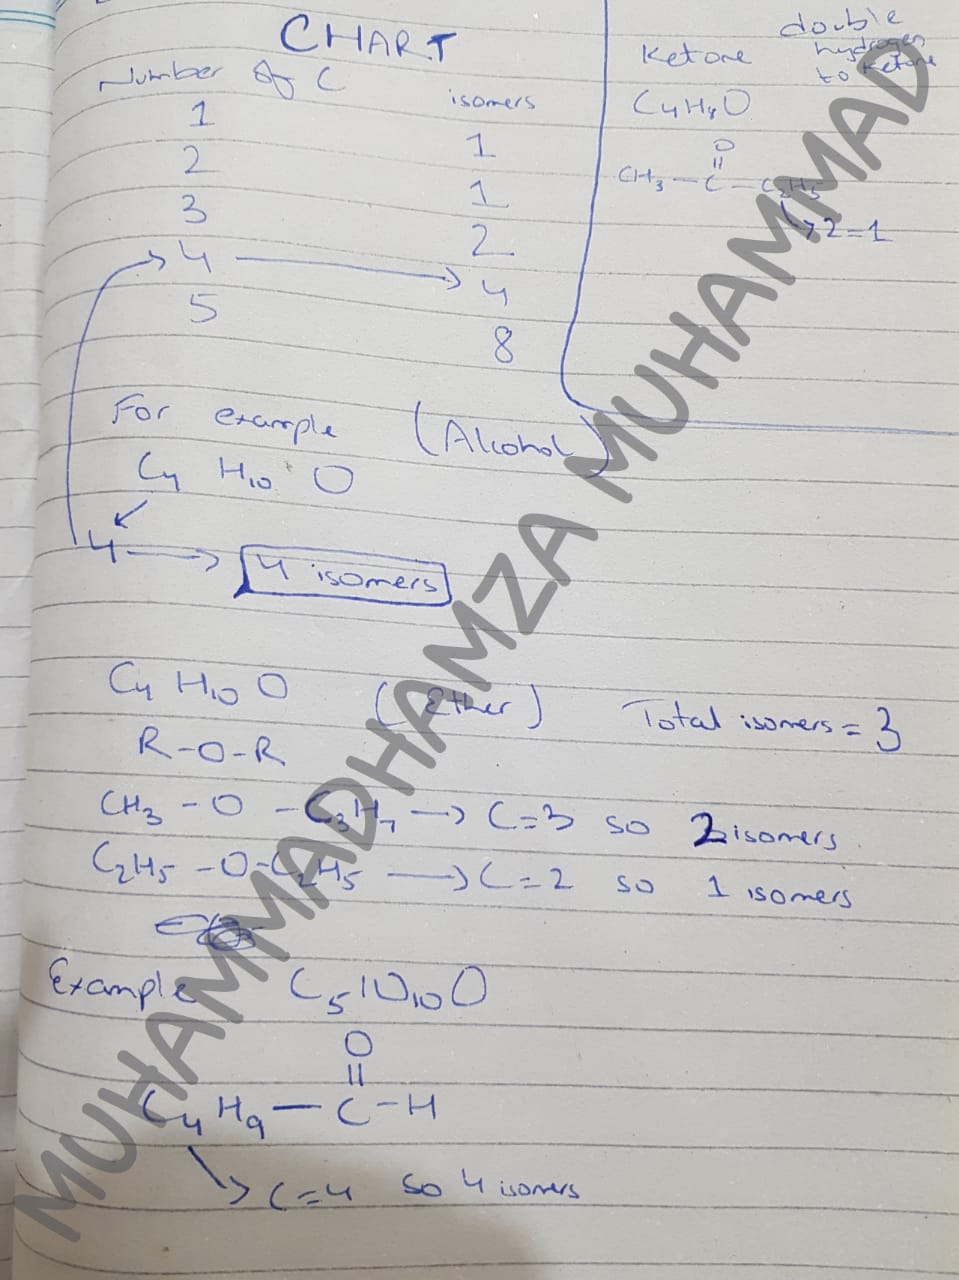 CHART
Number of C isomers
1 1
2 1
3 2
4 → 4
5 8
Ketone
double
hydrogen
to ketone
C₄H₈O
O
||
CH₃ — C — C₂H₅
↳ 2 = 1
For example (Alcohol)
C₄ H₁₀ O
4 → 4 isomers
C₄ H₁₀ O (Ether) Total isomers = 3
R-O-R
CH₃ - O - C₃H₇ → C=3 so 2 isomers
C₂H₅ - O - C₂H₅ → C=2 so 1 isomers
Example C₅10₁₀O
O
||
C₄H₉ — C-H
↳ C=4 so 4 isomers
MUHAMMADHAMZA MUHAMMAD